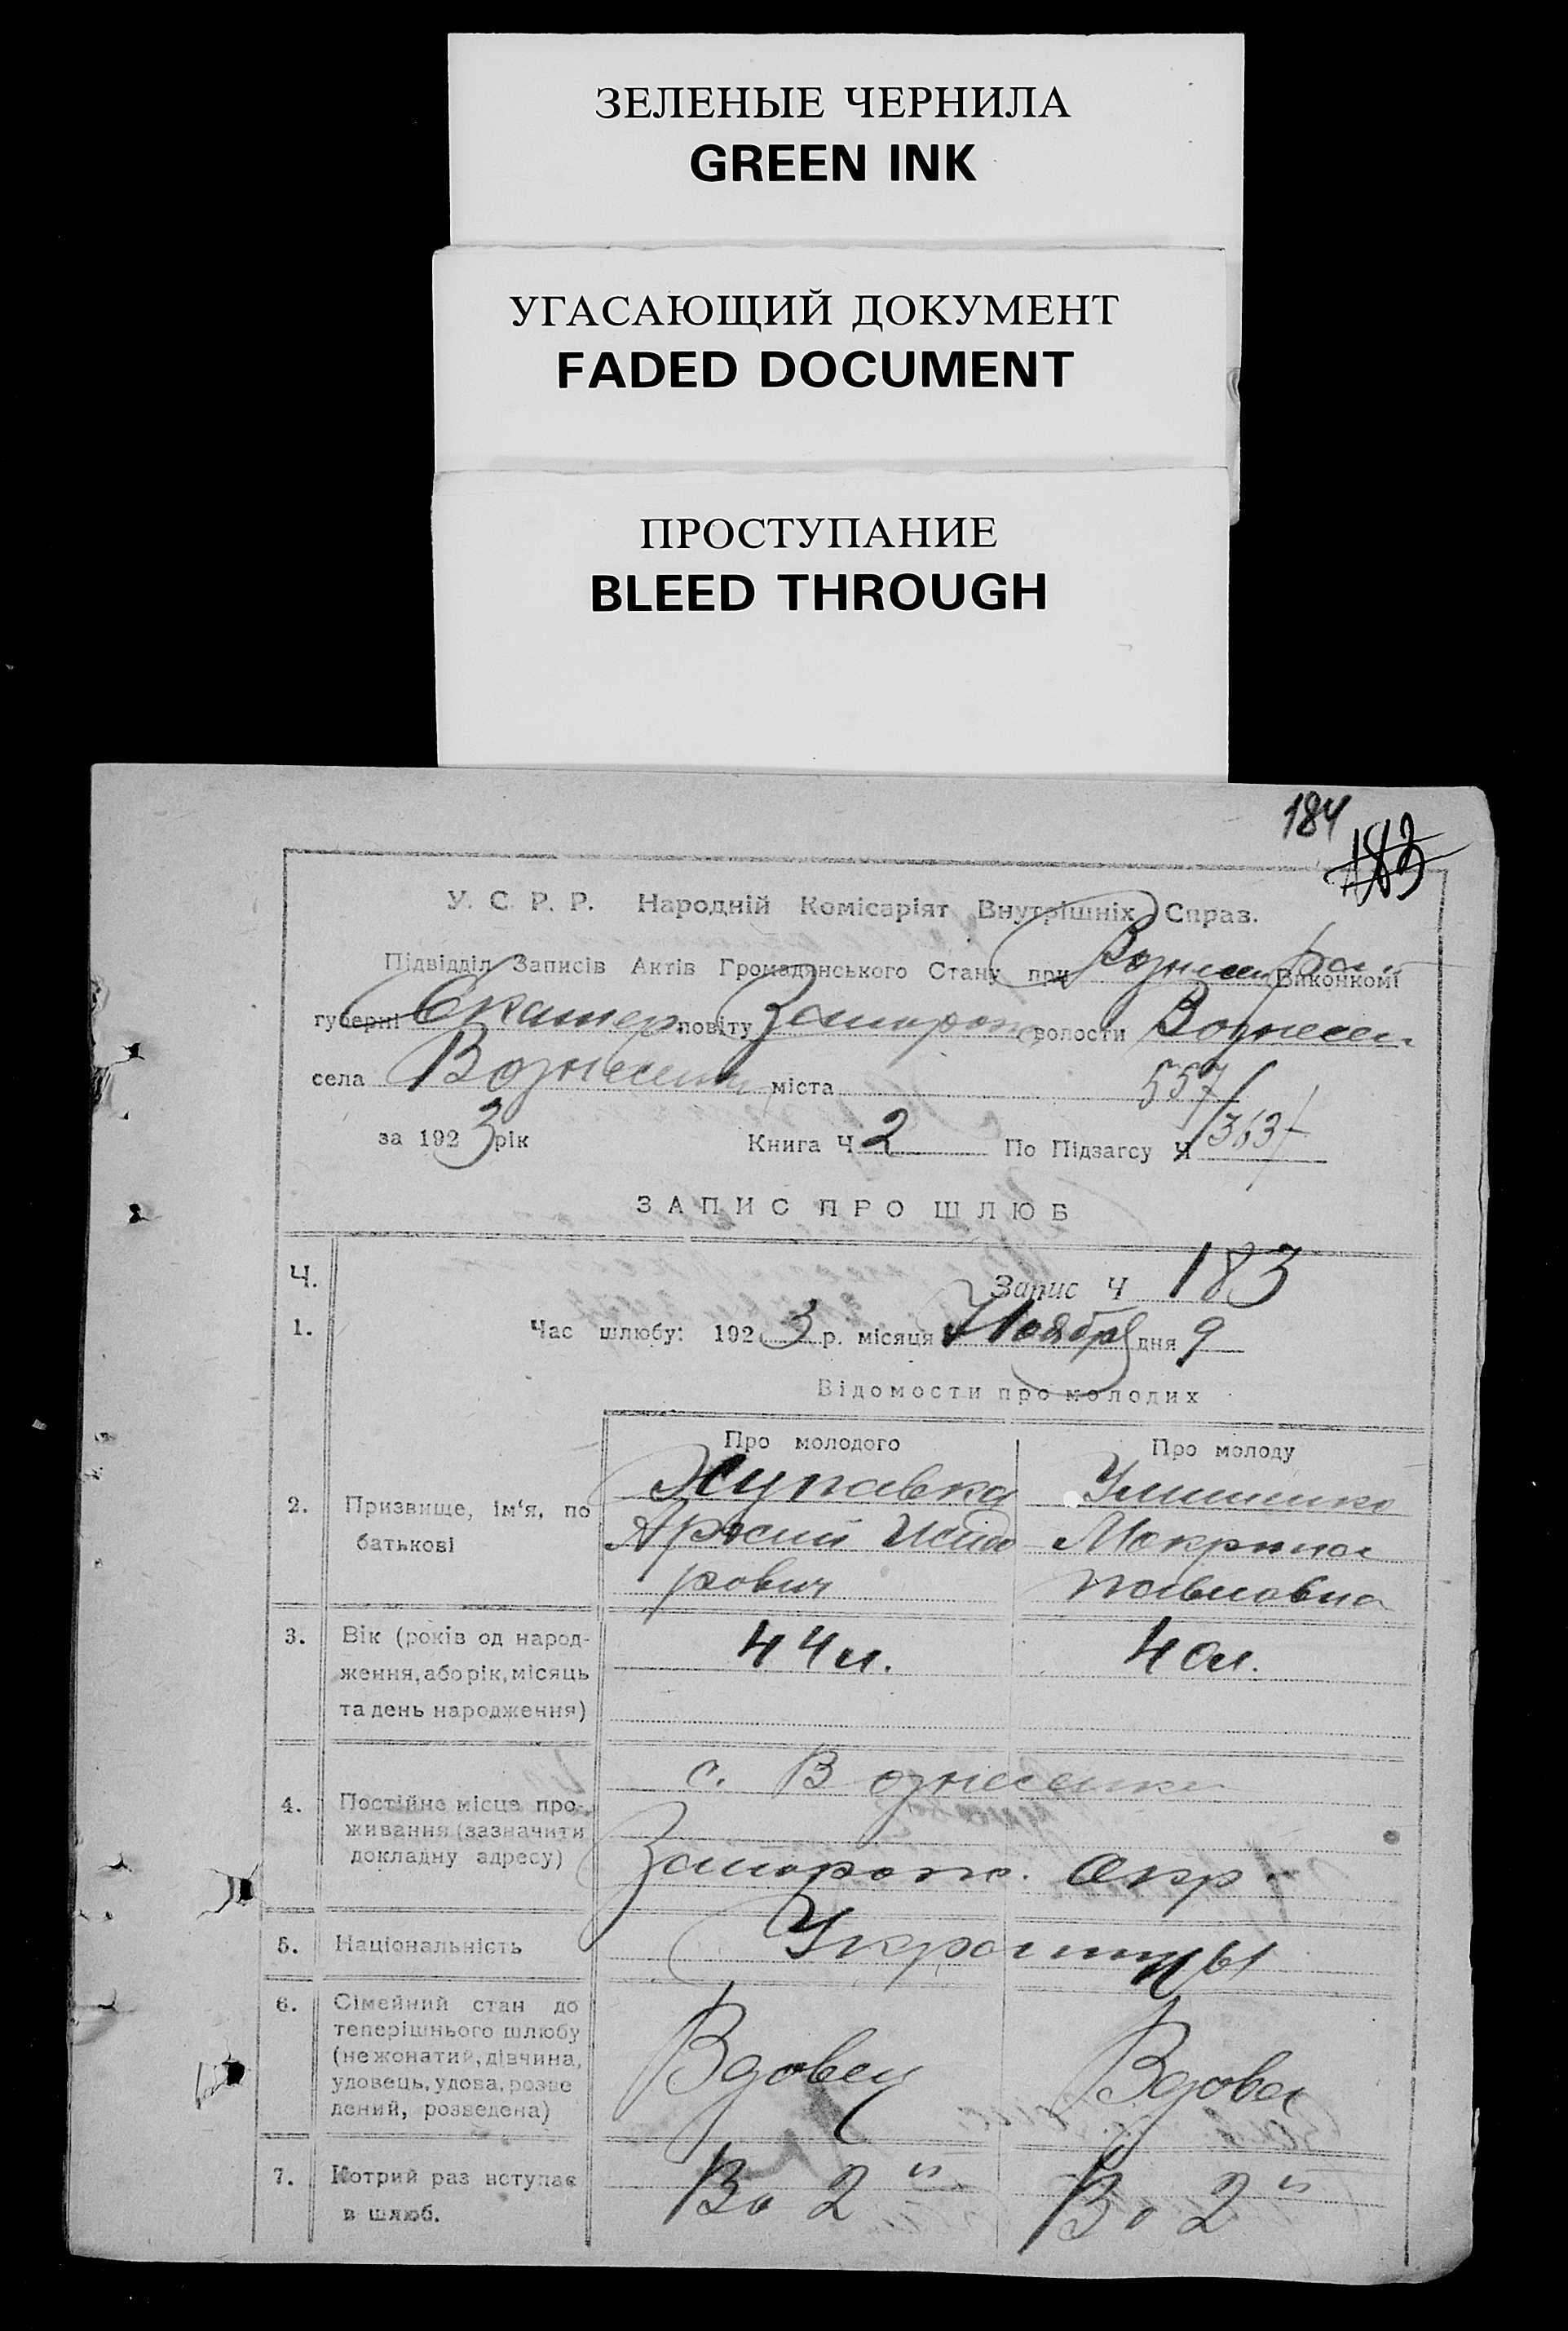 ЗЕЛЕНЫЕ ЧЕРНИЛА
GREEN INK
УГАСАЮЩИЙ ДОКУМЕНТ
FADED DOCUMENT
ПРОСТУПАНИЕ
BLEED THROUGH
184
183
У. С. Р. Р. Народній Комісаріят Внутрішніх Справ.
Підвідділ Записів Актів Громадянського Стану при Вознесен рай Виконкомі
губерні Екатер. повіту Запорож волости Вознесен.
села Вознесенки міста 557
за 1923 рік Книга Ч 2 По Підзагсу Ч 363
ЗАПИС ПРО ШЛЮБ
Ч. Запис Ч 183
1. Час шлюбу: 1923 р. місяця Ноября дня 9
Відомости про молодих
Про молодого Про молоду
2. Призвище, ім'я, по батькові
Жупавка
Арсений Исидо
рович
Макрина
Павловна
3. Вік (років од народ-
ження, або рік, місяць
та день народження)
44 л. 40 л.
4. Постійне місце про-
живання (зазначити
докладну адресу)
с. Вознесенка
Запорож. Окр.
5. Національність Украинцы
6. Сімейний стан до
теперішнього шлюбу
(не жонатий, дівчина,
удовець, удова, розве
дений, розведена)
Вдовец Вдова
7. Котрий раз вступає
в шлюб.
Во 2й Во 2й